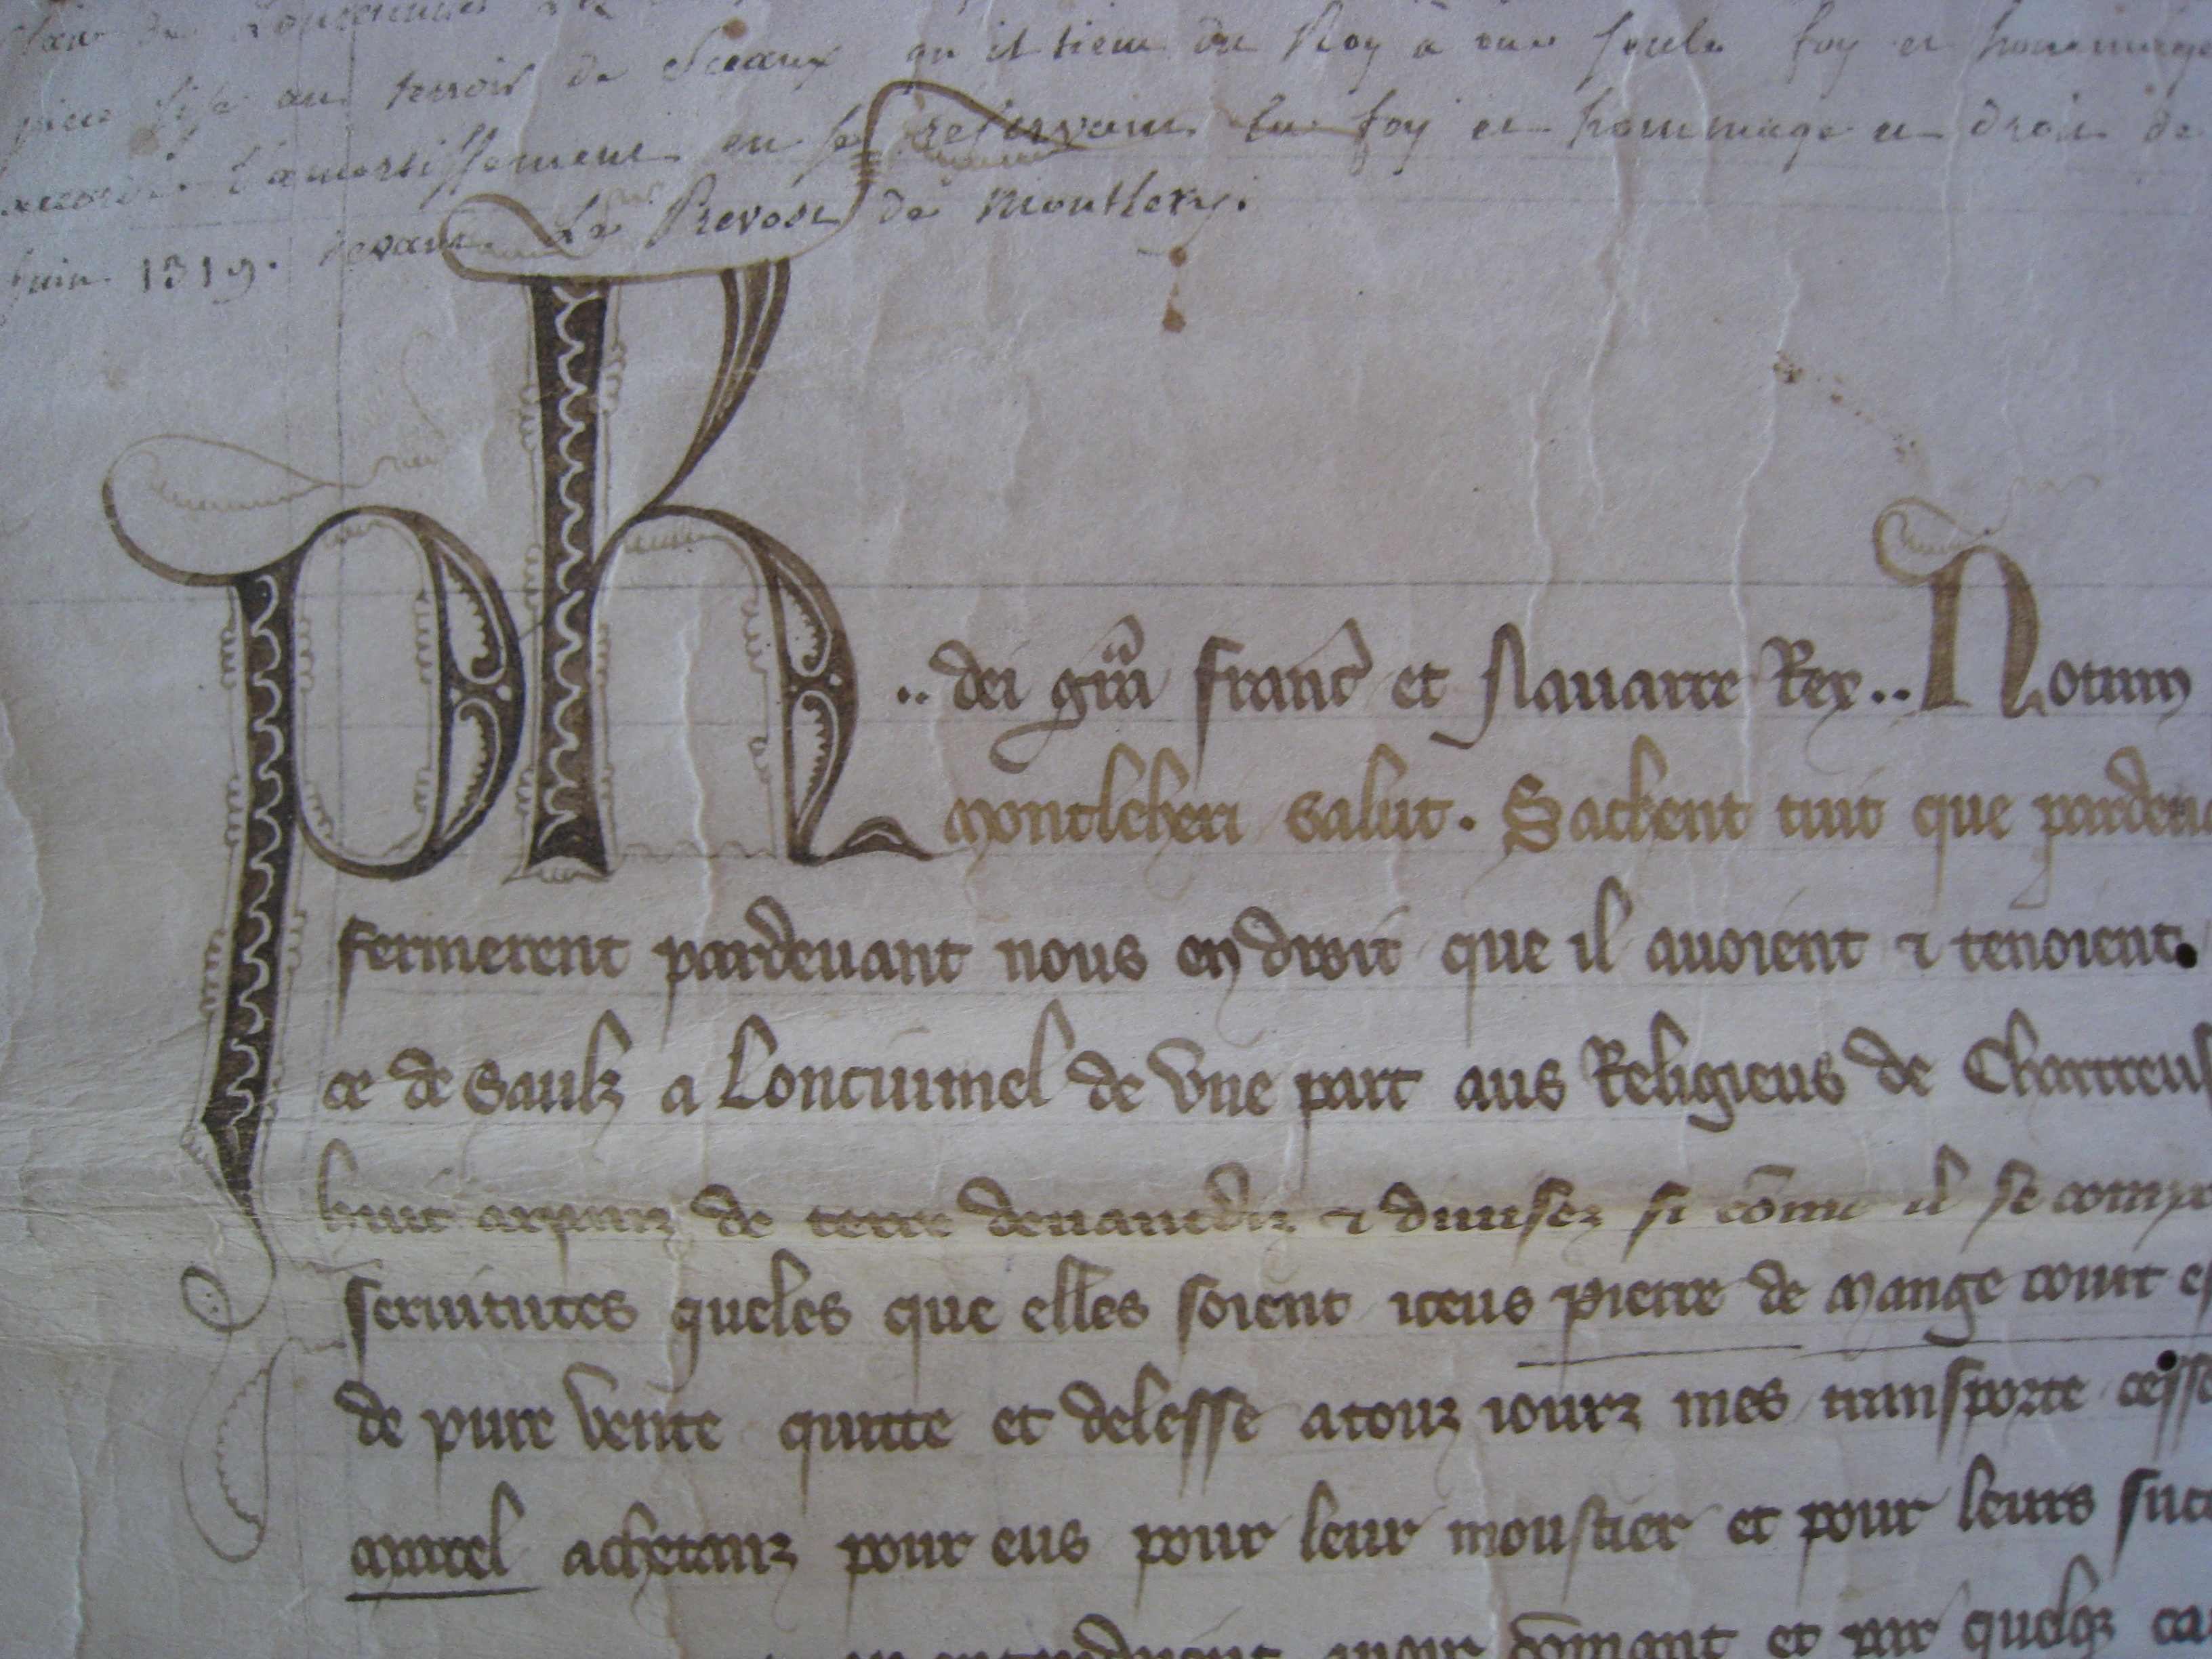 piece sise au terroir de Sceaux qu il tient du Roy à une seule foy et hommage
accorde l'amortissement en se reservant la foy et hommage et droit de
juin 1319. devant Le Prevost de Montlery.
Ph .. dei gra franc et Nauarre Rex .. Notum
Montleheri salut . Sachent tuit que pardeu
fermerent pardeuant nous en droit que il auoient ⁊ tenoient.
ce de Saulz a Loncuimel de vne part aus Religieus de Chartreus
huit arpenz de terre deuantdiz ⁊ diuisez si come il se comp
seruitutes queles que elles soient iceus pierre de Mange court es
de pure vente quitte et delesse a touz iourz mes transporte cesse
Murel achetanz pour eus pour leur moustier et pour leurs suc
auoir et par quelq ca